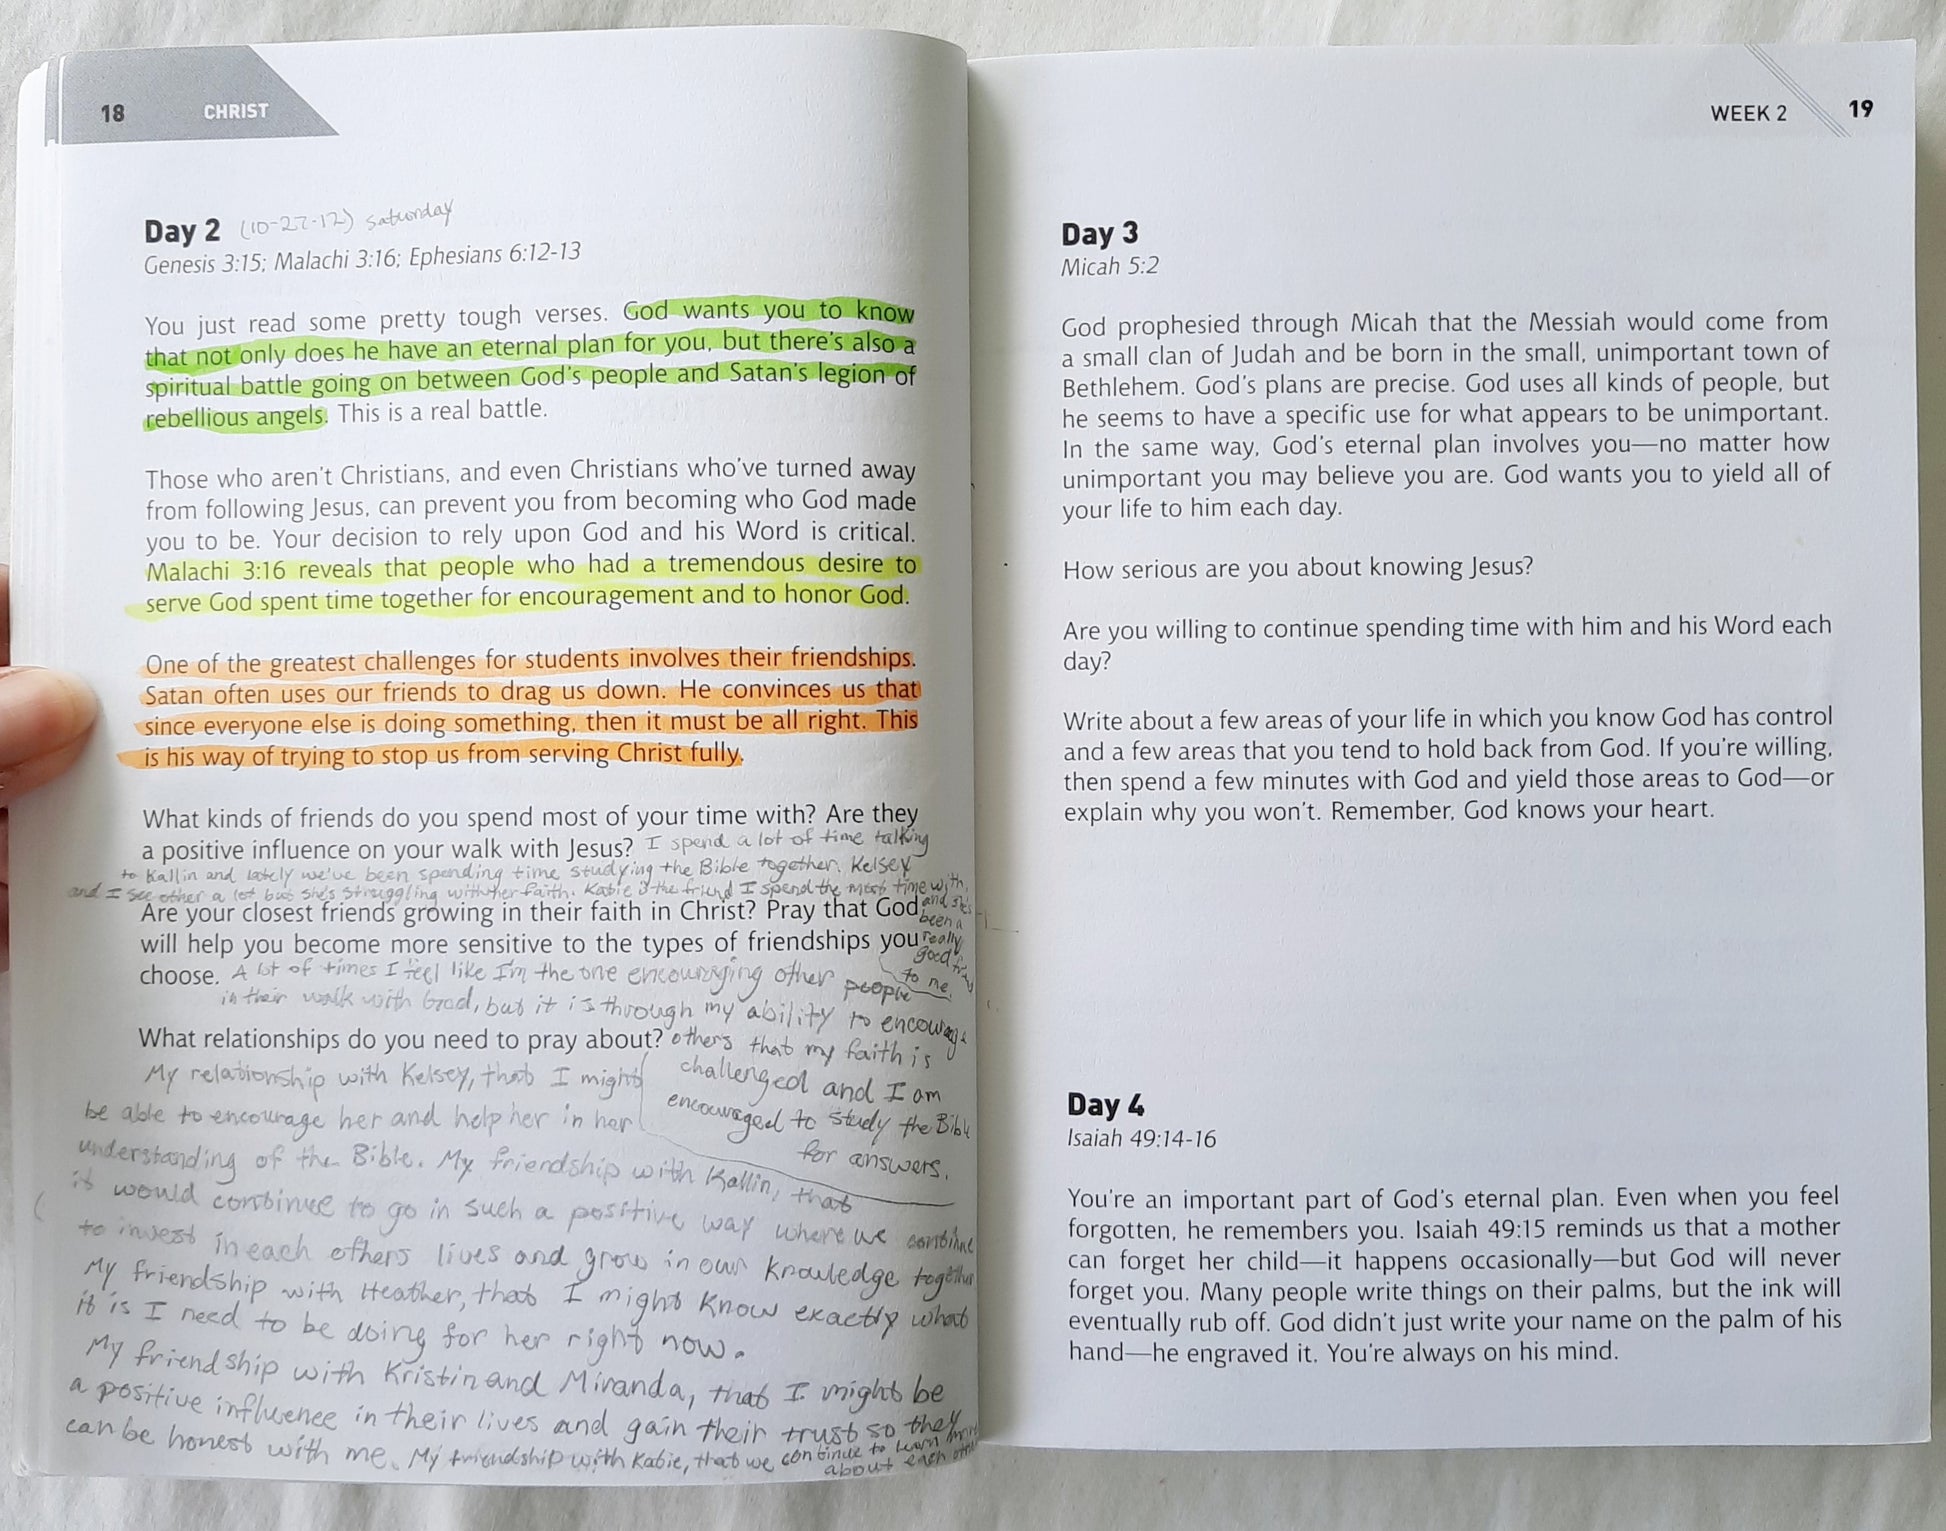 18 CHRIST
Day 2 (10-27-12) Saturday
Genesis 3:15; Malachi 3:16; Ephesians 6:12-13
You just read some pretty tough verses. God wants you to know
that not only does he have an eternal plan for you, but there's also a
spiritual battle going on between God's people and Satan's legion of
rebellious angels. This is a real battle.
Those who aren't Christians, and even Christians who've turned away
from following Jesus, can prevent you from becoming who God made
you to be. Your decision to rely upon God and his Word is critical.
Malachi 3:16 reveals that people who had a tremendous desire to
serve God spent time together for encouragement and to honor God.
One of the greatest challenges for students involves their friendships.
Satan often uses our friends to drag us down. He convinces us that
since everyone else is doing something, then it must be all right. This
is his way of trying to stop us from serving Christ fully.
What kinds of friends do you spend most of your time with? Are they
a positive influence on your walk with Jesus? I spend a lot of time talking
to Kallin and lately we've been spending time studying the Bible together. Kelsey
and I see other a lot but she's struggling with her faith. Katie is the friend I spend the most time with,
and she's
been a
really
good friend
to me.
Are your closest friends growing in their faith in Christ? Pray that God
will help you become more sensitive to the types of friendships you
choose. A lot of times I feel like I'm the one encouraging other people
in their walk with God, but it is through my ability to encourage
others that my faith is
challenged and I am
encouraged to study the Bible
for answers.
What relationships do you need to pray about?
My relationship with Kelsey, that I might
be able to encourage her and help her in her
understanding of the Bible. My friendship with Kallin, that
it would continue to go in such a positive way where we continue
to invest in each others lives and grow in our knowledge together
My friendship with Heather, that I might know exactly what
it is I need to be doing for her right now.
My friendship with Kristin and Miranda, that I might be
a positive influence in their lives and gain their trust so they
can be honest with me. My friendship with Katie, that we continue to learn more
about each other
WEEK 2 19
Day 3
Micah 5:2
God prophesied through Micah that the Messiah would come from
a small clan of Judah and be born in the small, unimportant town of
Bethlehem. God's plans are precise. God uses all kinds of people, but
he seems to have a specific use for what appears to be unimportant.
In the same way, God's eternal plan involves you—no matter how
unimportant you may believe you are. God wants you to yield all of
your life to him each day.
How serious are you about knowing Jesus?
Are you willing to continue spending time with him and his Word each
day?
Write about a few areas of your life in which you know God has control
and a few areas that you tend to hold back from God. If you're willing,
then spend a few minutes with God and yield those areas to God—or
explain why you won't. Remember, God knows your heart.
Day 4
Isaiah 49:14-16
You're an important part of God's eternal plan. Even when you feel
forgotten, he remembers you. Isaiah 49:15 reminds us that a mother
can forget her child—it happens occasionally—but God will never
forget you. Many people write things on their palms, but the ink will
eventually rub off. God didn't just write your name on the palm of his
hand—he engraved it. You're always on his mind.